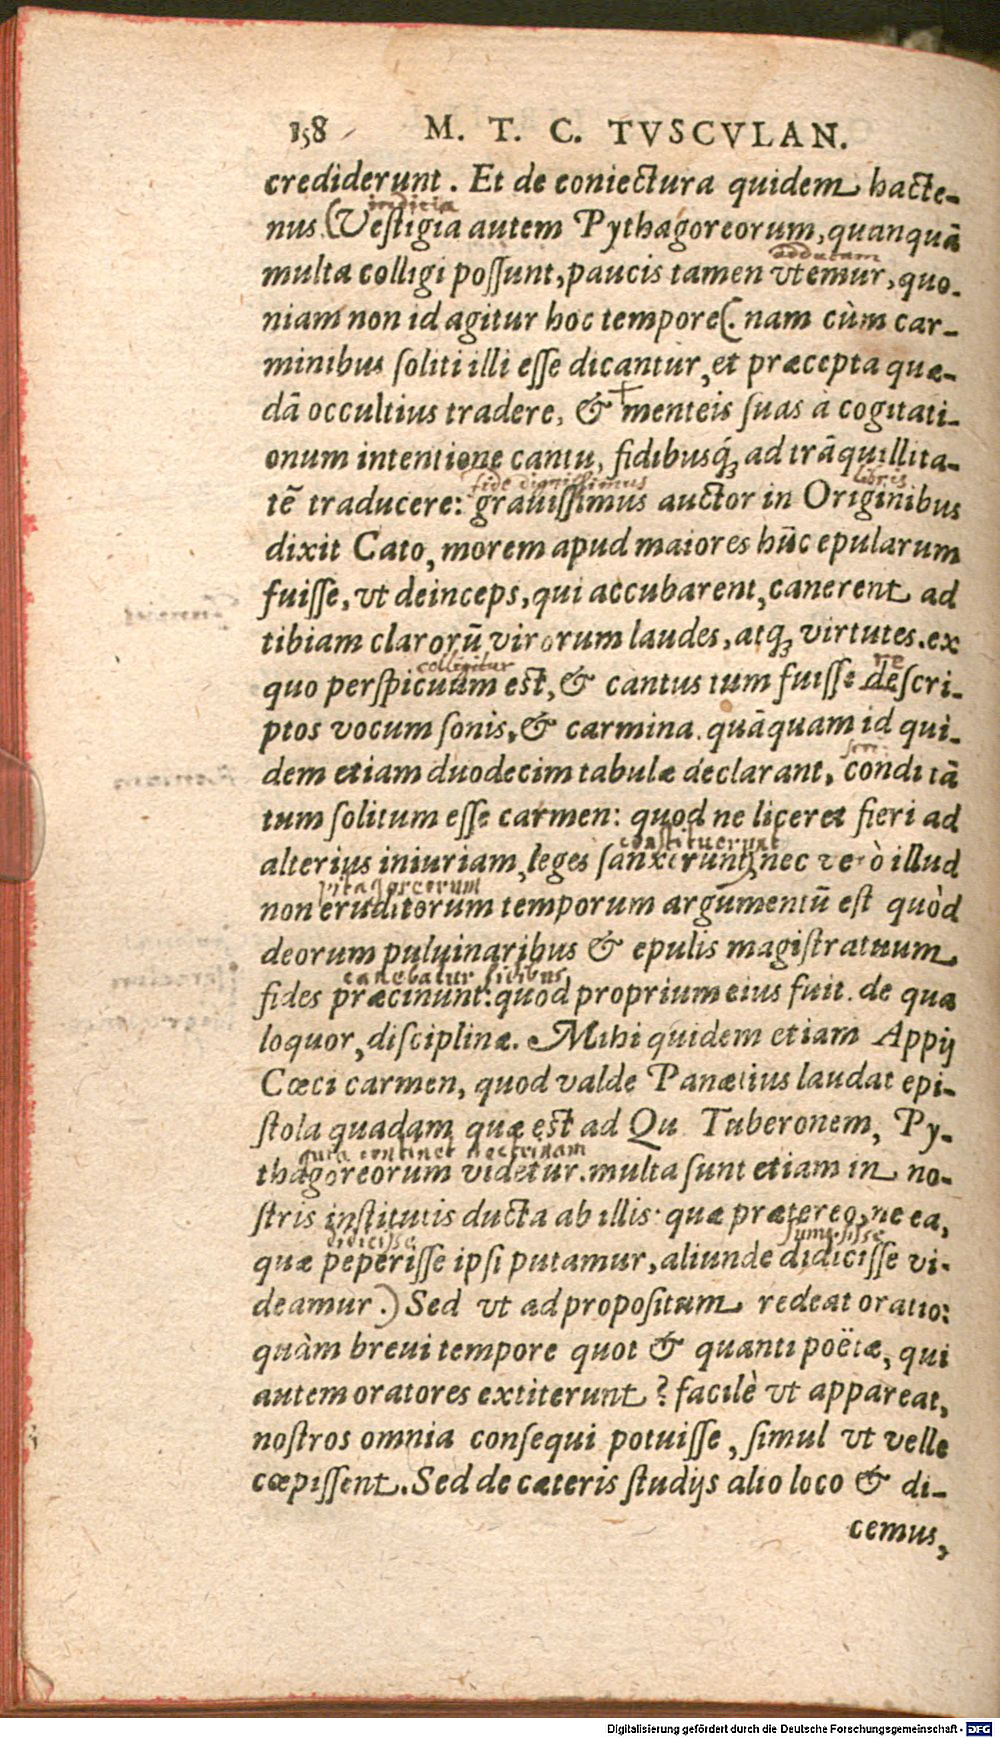 158 M. T. C. TVSCVLAN.
crediderunt. Et de coniectura quidem hacte-
indicia
nus. (Vestigia autem Pythagoreorum, quanquā
adducam
multa colligi possunt, paucis tamen vtemur, quo-
niam non id agitur hoc tempore(. nam cùm car-
minibus soliti illi esse dicantur, et præcepta quæ-
dā occultius tradere, & menteis suas à cogitati-
onum intentione cantu, fidibusq́; ad trāquillita-
fide dignissimus libris
tē traducere: grauissimus auctor in Originibus
dixit Cato, morem apud maiores hūc epularum
fuisse, vt deinceps, qui accubarent, canerent ad
tibiam clarorū virorum laudes, atq; virtutes. ex
colligitur re
quo perspicuum est, & cantus tum fuisse descri-
ptos vocum sonis, & carmina. quāquam id qui-
dem etiam duodecim tabulæ declarant, condi tā
tum solitum esse carmen: quod ne liceret fieri ad
constituerunt
alterius iniuriam, leges sanxerunt, nec verò illud
pitagorcorum
non eruditorum temporum argumentū est quòd
deorum puluinaribus & epulis magistratuum
canebatur fidibus
fides præcinunt: quod proprium eius fuit. de qua
loquor, disciplinæ. Mihi quidem etiam Appij
Cæci carmen, quod valde Panætius laudat epi-
stola quadam quæ est ad Qu. Tuberonem, Py-
quia continet doctrinam
thagoreorum videtur. multa sunt etiam in no-
stris institutis ducta ab illis: quæ prætereo, ne ea,
didicisse sumpsisse
quæ peperisse ipsi putamur, aliunde didicisse vi-
deamur.) Sed vt ad propositum redeat oratio:
quàm breui tempore quot & quanti poëtæ, qui
autem oratores extiterunt? facilè vt appareat,
nostros omnia consequi potuisse, simul vt velle
cœpissent. Sed de cæteris studijs alio loco & di-
cemus,
Digitalisierung gefördert durch die Deutsche Forschungsgemeinschaft - DFG